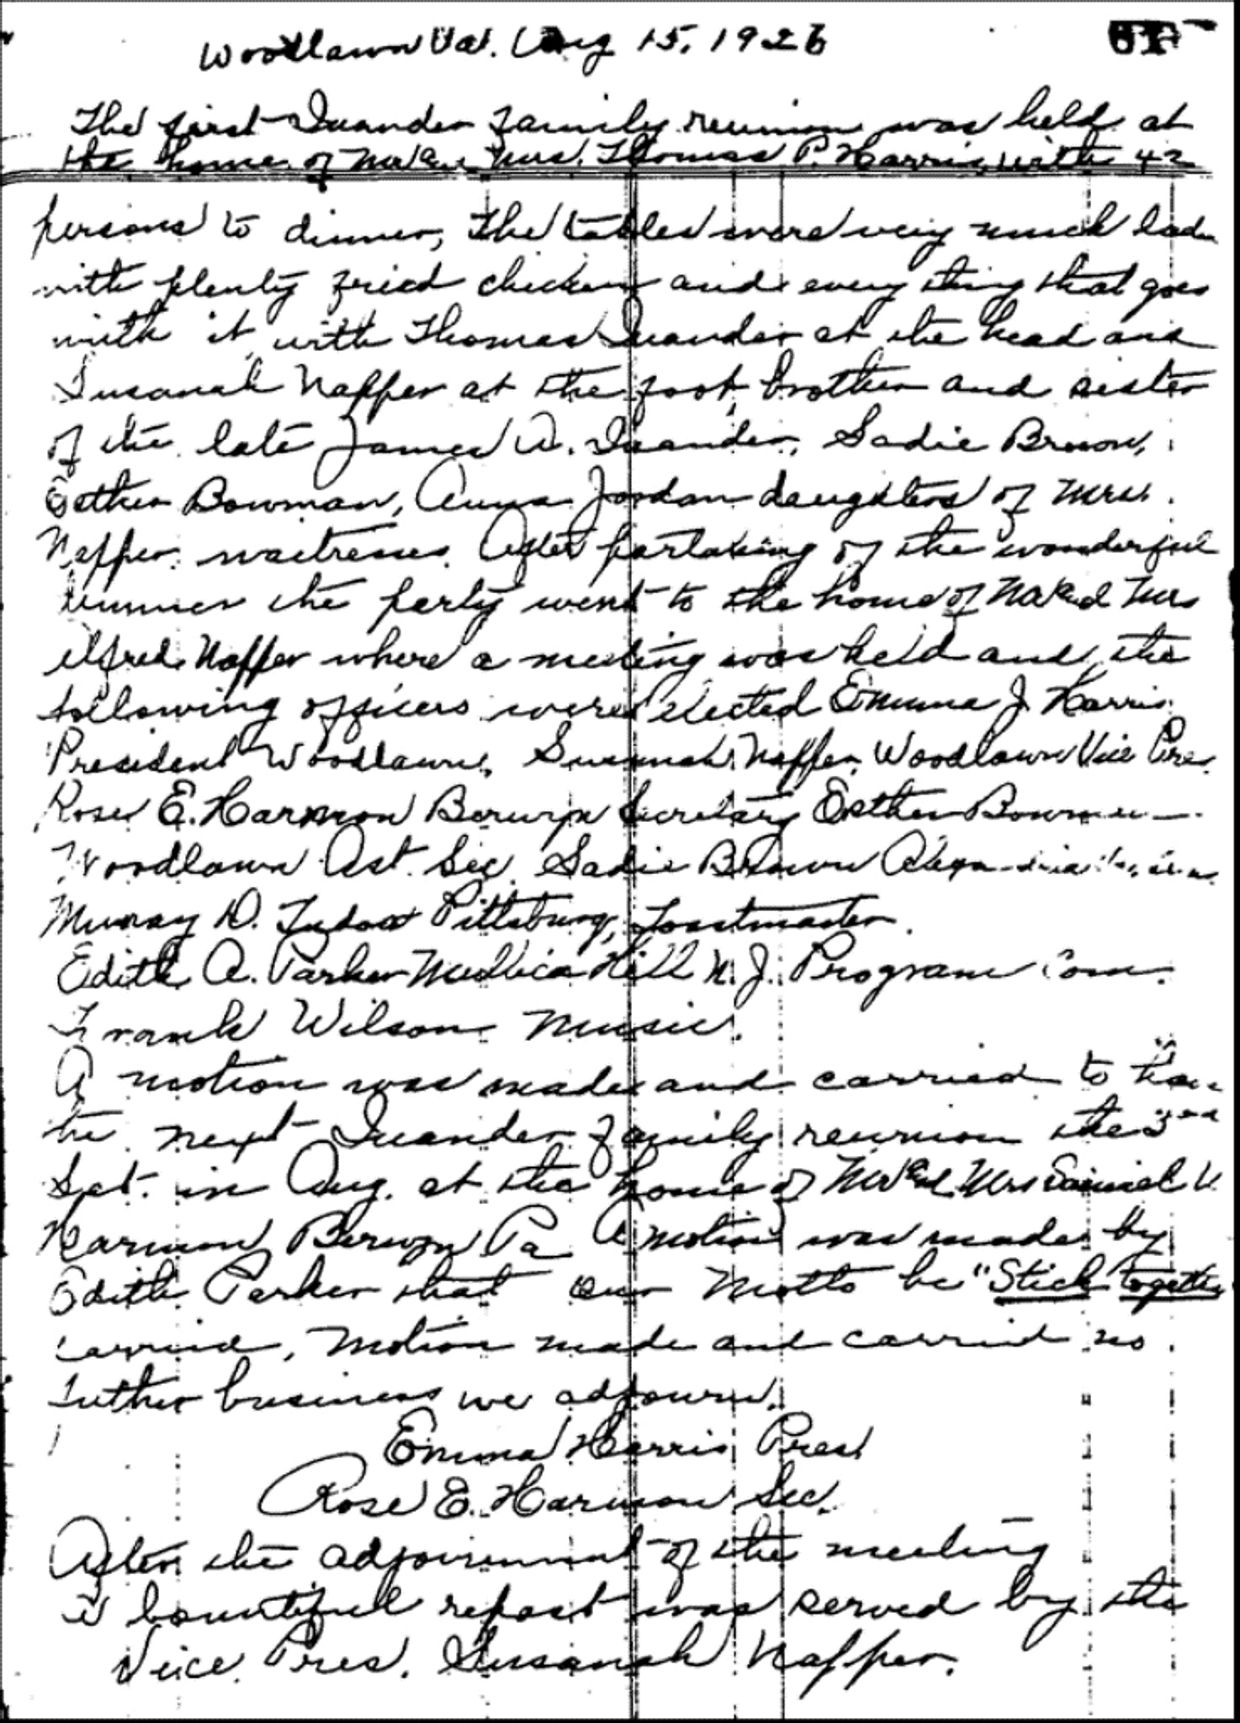 Woodlawn Va. Aug 15, 1926
The first Quander family reunion was held at
the home of Mr and Mrs. Thomas P. Harris, with 42
persons to dinner, The tables were very much laden
with plenty fried chicken and every thing that goes
with it, with Thomas Quander at the head and
Susanah Napper at the foot, brother and sister
of the late James W. Quander, Sadie Brown,
Esther Bowman, Anna Jordan daughters of Mrs.
Napper waitresses. After partaking of the wonderful
dinner the party went to the home of Mr and Mrs
Alfred Napper where a meeting was held and the
following officers were elected Emma J. Harris
President Woodlawn, Susannah Napper, Woodlawn Vice Pres.
Rose E. Harmon Berwyn Secretary Esther Bowman
Woodlawn Ast. Sec. Sadie Brown
Murray D. Pittsburg, Toastmaster.
Edith A. Parker Mullica Hill N. J. Program Com.
Frank Wilson Music.
A motion was made and carried to have
the next Quander family reunion the 3rd
Sat. in Aug. at the home of Mr and Mrs Samuel V.
Harmon Berwyn Pa A motion was made by
Edith Parker that our Motto be "Stick together
carried, Motion made and carried no
futher business we adjourn.
Emma Harris Pres.
Rose E. Harmon Sec.
After the adjournment of the meeting
a bountiful repast was served by the
Vice Pres. Susanah Napper.